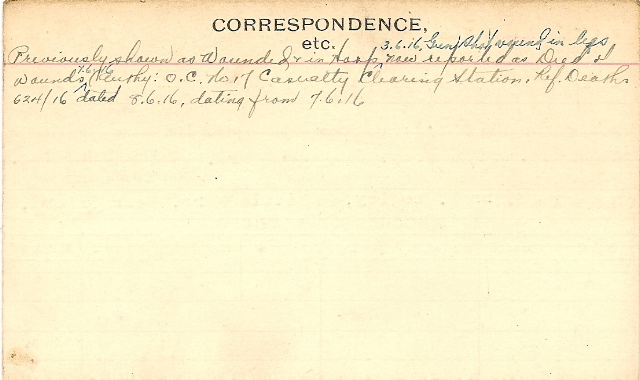 CORRESPONDENCE,
etc.
3.6.16, Gun Shot wound in legs
Previously shown as Wounded & in Hosp. now reported as Died of
7.6.16
wounds, Authy: O.C. No. 17 Casualty Clearing Station. Ref. Deaths
624/16 dated 8.6.16, dating from 7.6.16